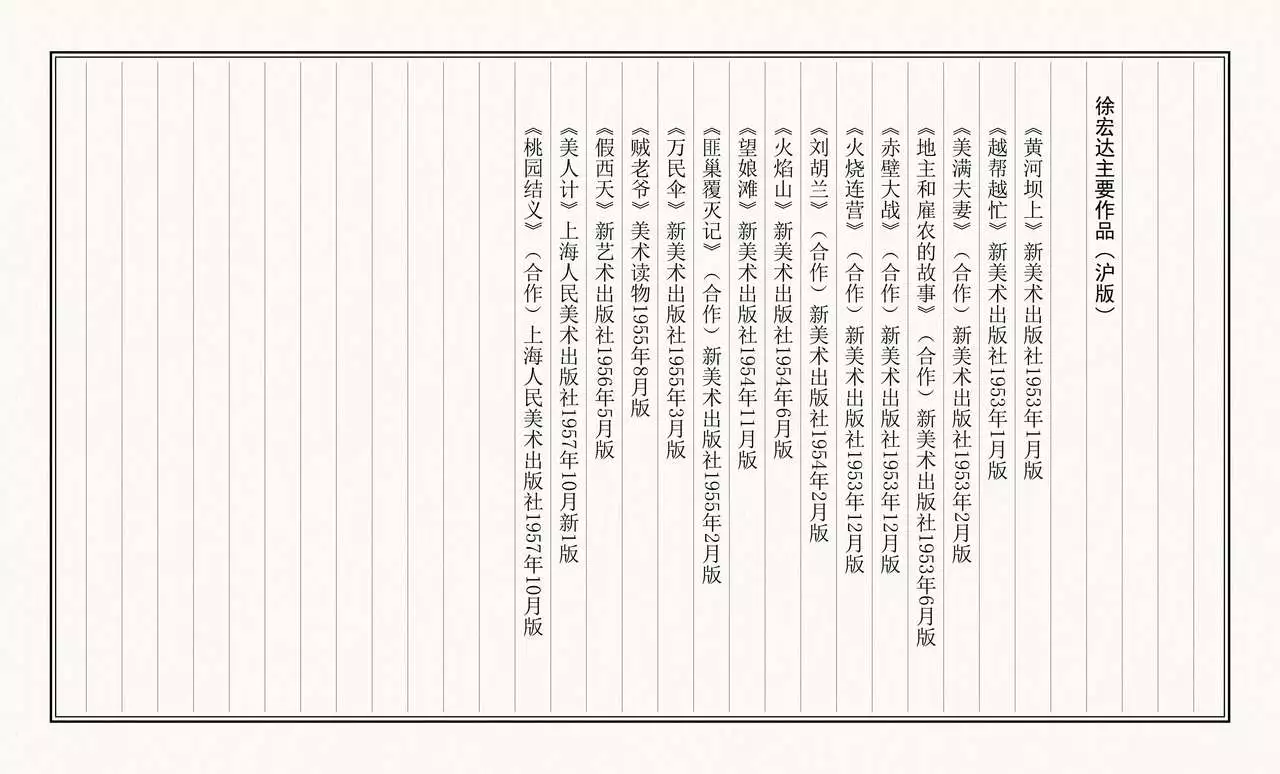 徐宏达主要作品（沪版）
《黄河坝上》新美术出版社1953年1月版
《越帮越忙》新美术出版社1953年1月版
《美满夫妻》（合作）新美术出版社1953年2月版
《地主和雇农的故事》（合作）新美术出版社1953年6月版
《赤壁大战》（合作）新美术出版社1953年12月版
《火烧连营》（合作）新美术出版社1953年12月版
《刘胡兰》（合作）新美术出版社1954年2月版
《火焰山》新美术出版社1954年6月版
《望娘滩》新美术出版社1954年11月版
《匪巢覆灭记》（合作）新美术出版社1955年2月版
《万民伞》新美术出版社1955年3月版
《贼老爷》美术读物1955年8月版
《假西天》新艺术出版社1956年5月版
《美人计》上海人民美术出版社1957年10月新1版
《桃园结义》（合作）上海人民美术出版社1957年10月版